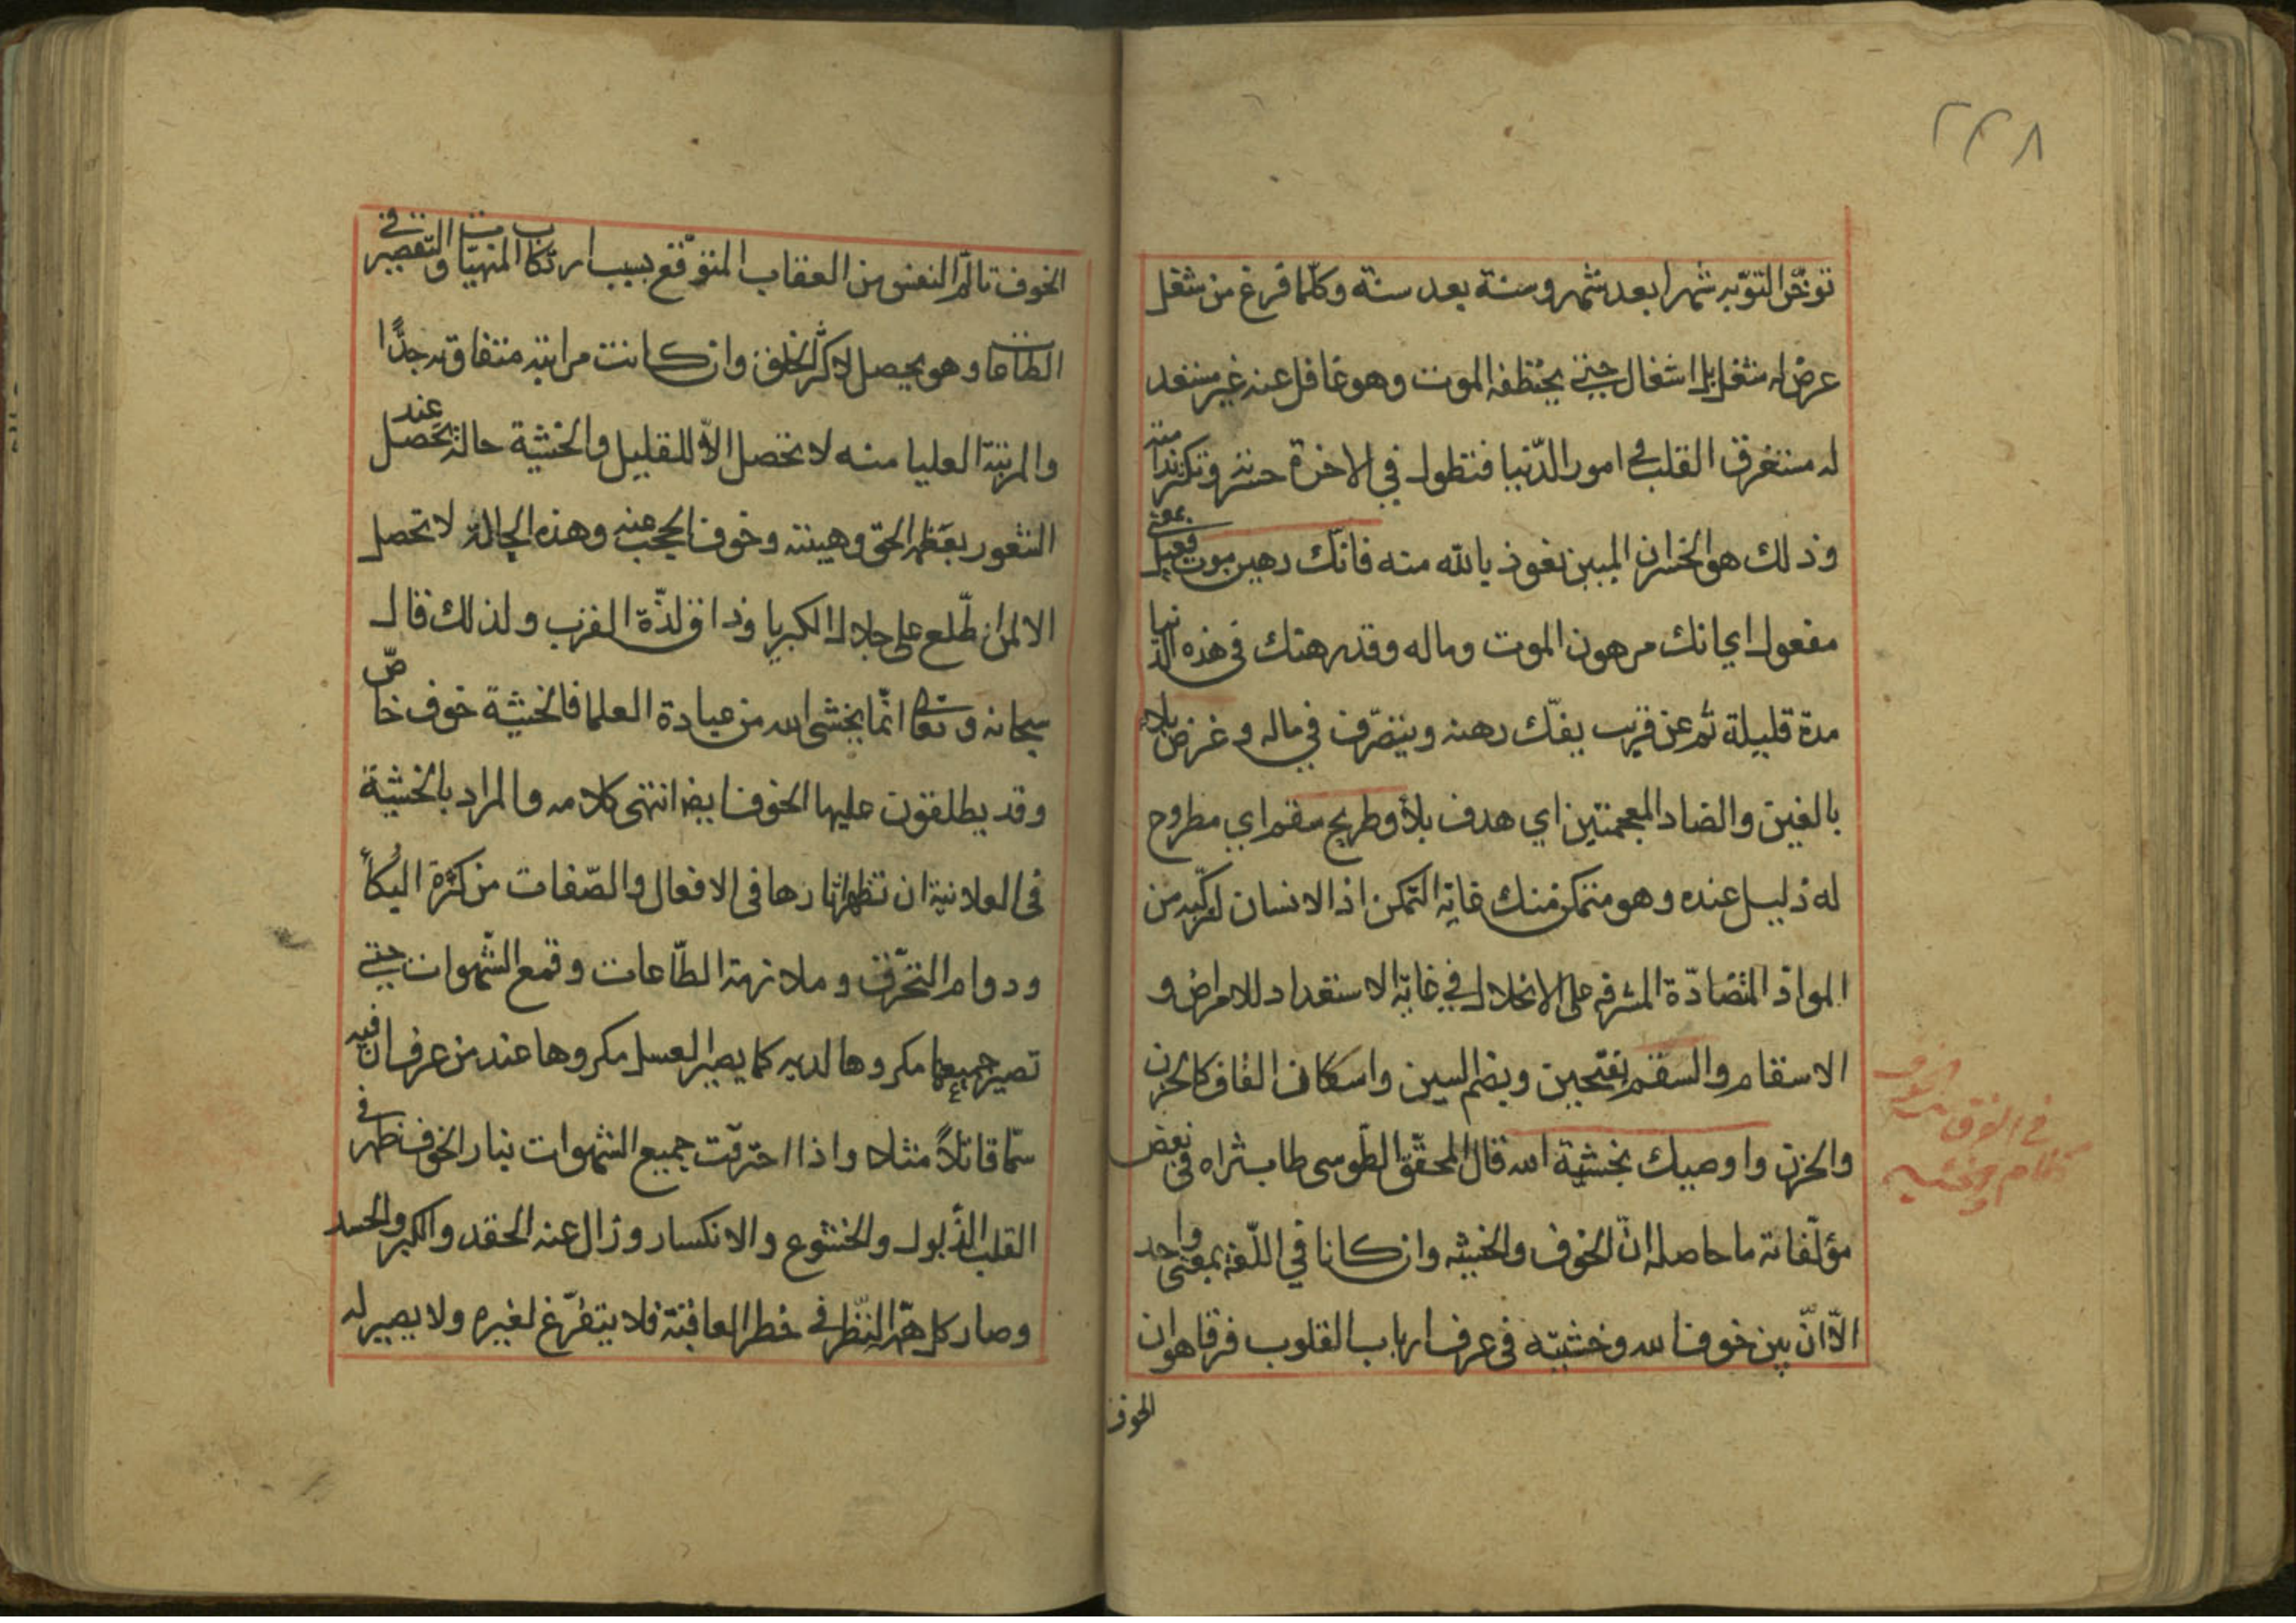 ٢٣٨
تؤخّر التوّبه شهرا بعد شهر وسنة بعد سنة وكلّما فرغ من شغل
عرض له شغل بل اشغال حتي يختطفه الموت وهو غافل عنه غير مستعد
له مستغرق القلب في امور الدّنيا فتطول في الاخرة حسرته وتكثر ندامته
وذلك هو الخسران المبين نعوذ بالله منه فانّك رهين موت فعيل بمعني
مفعول اي انك مرهون الموت وماله وقد رهنك في هذه الدّنيا
مدة قليلة ثم عن قريب يفكّ رهنه ويتصّرف في ماله وغرض بلاء
بالغين والضاد المعجمتين اي هدف بلاء وطريح سقم اي مطروح
له ذليل عنده وهو متمكن منك غاية التمكن اذ الانسان لتركّبه من
الموادّ المتضادّة المشرفه على الانحلال في غاية الاستعداد للامراض و
الاسقام والسقم بفتحين وبضم السين واسكان القاف كالحزن
والحزن واوصيك بخشية الله قال المحقّق الطّوسي طاب ثراه في بعض
مؤلّفاته ما حاصله انّ الخوف والخشيه وان كانا في اللّغه بمعنى واحد
الاّ انّ بين خوف الله وخشيته في عرف ارباب القلوب فرقا هو ان
الخوف
في الفرق بين الخوف
الخوف تالّم النفس من العقاب المتوّقع بسبب ارتكاب المنهيّات والتّقصير في
الطاعات وهو يحصل لاكثر الخلق وان كانت مراتبه متفاوته جدًّا
والمرتبة العليا منه لا تحصل الاّ للقليل والخشية حالة تحصل عند
الشعور بعظمه الحق وهيبته وخوف الحجب عنه وهذه الحالة لا تحصل
الا لمن اطّلع على جلال الكبريا وذاق لذّة القرب ولذلك قال
سبحانه وتعالى انّما يخشى الله من عباده العلما فالخشية خوف خاصّ
وقد يطلقون عليها الخوف ايضا انتهى كلامه والمراد بالخشية
في العلانية ان تظهر اثارها في الافعال والصّفات من كثرة البُكاء
ودوام التحّرق وملازمة الطّاعات وقمع الشّهوات حتي
تصير جميعها مكروها لديه كما يصير العسل مكروها عند من عرف ان فيه
سمّا قاتلاً مثلا واذا احترقت جميع الشهوات بنار الخوف ظهر في
القلب الذّبول والخشوع والانكسار وزال عنه الحقد والكبر والحسد
وصار كل همّه النّظر في خطر العاقبة فلا يتفّرغ لغيره ولا يصير له